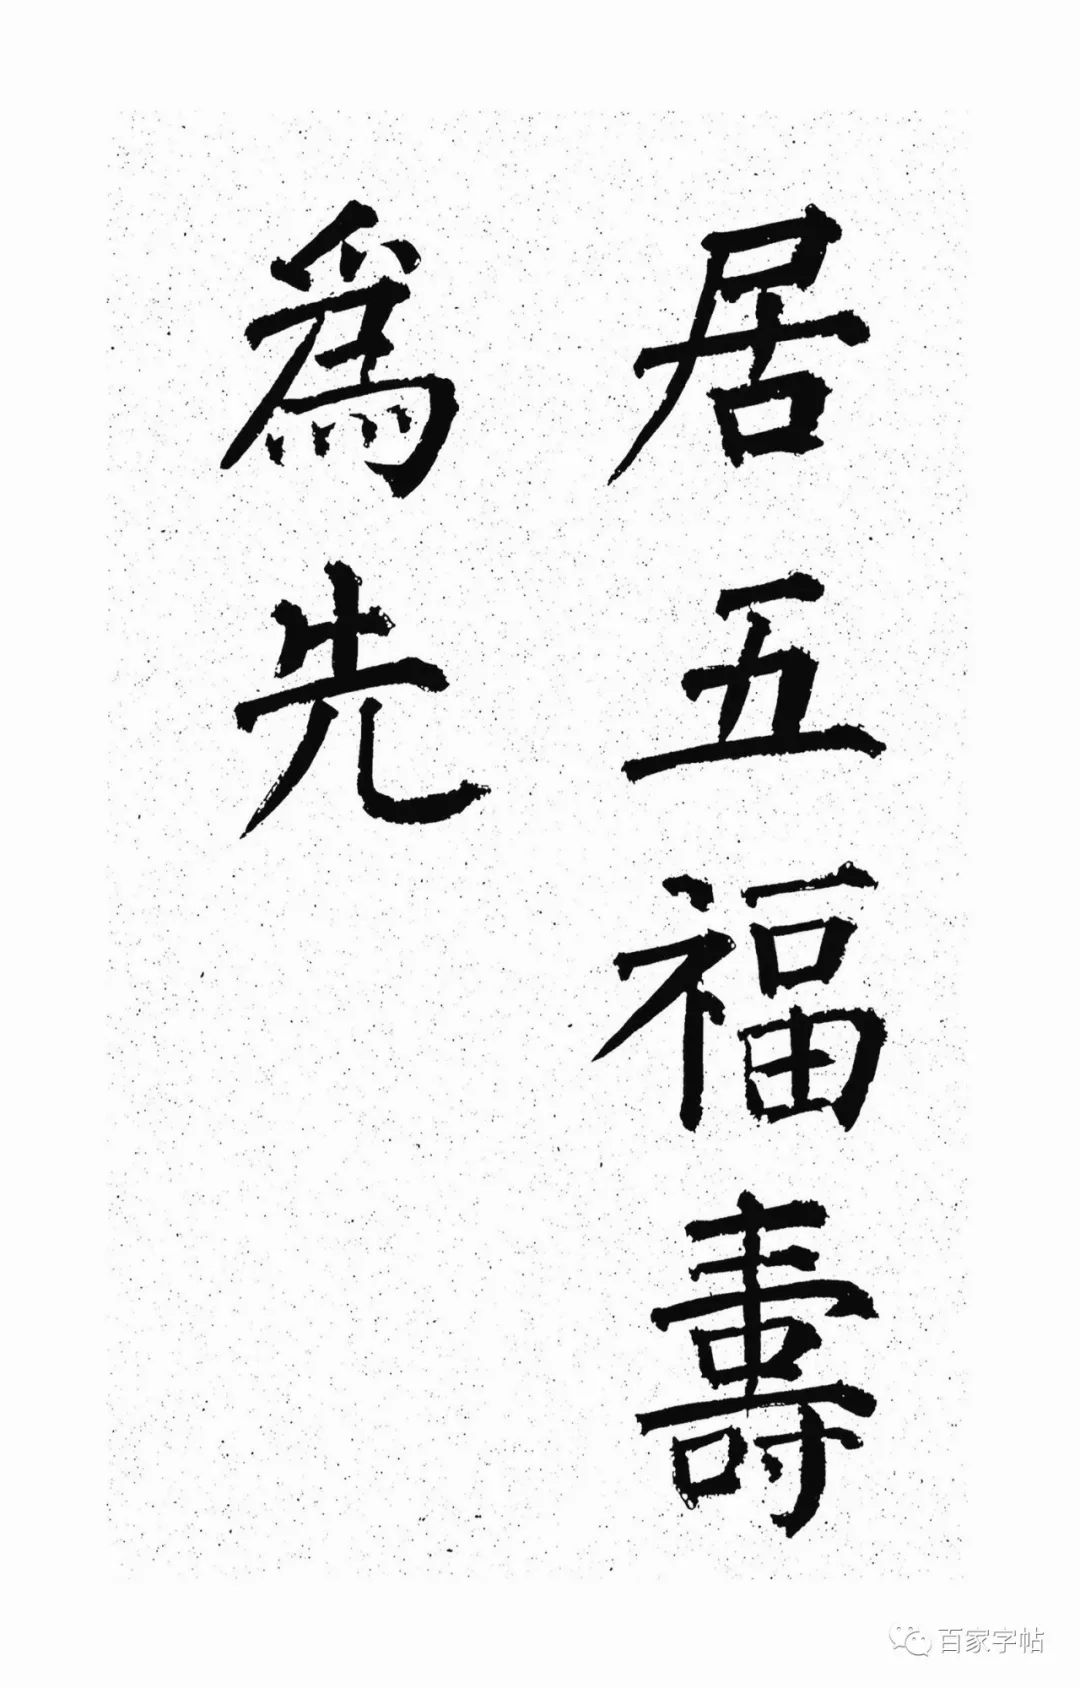 居五福壽
爲先
百家字帖